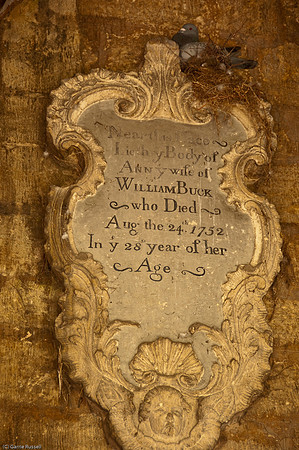 Near this Place
Lieth y Body of
Ann y wife of
WILLIAM BUCK
who Died
Aug. the 24th. 1752
In y 28 year of her
Age
(C) Garrie Russell